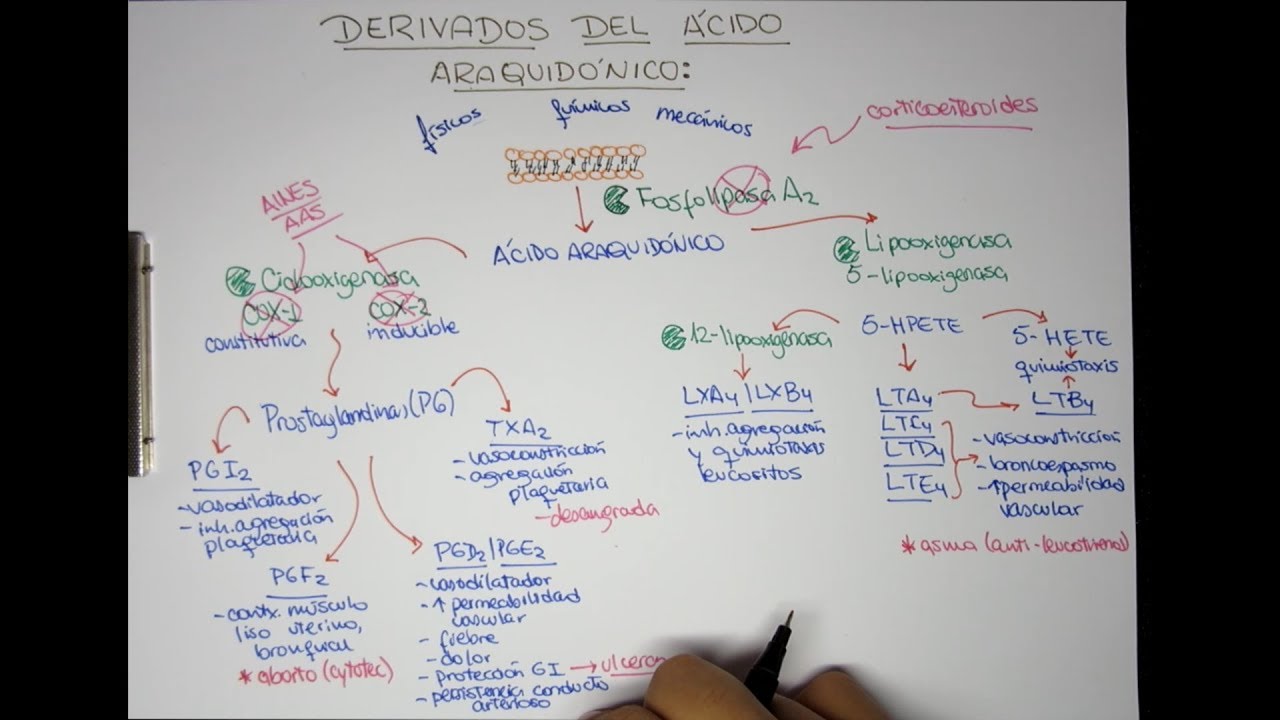 DERIVADOS DEL ÁCIDO
ARAQUIDÓNICO:
físicos químicos mecánicos
corticoesteroides
Fosfolipasa A2
AINES
AAS
ÁCIDO ARAQUIDÓNICO
Ciclooxigenasa
COX-1 COX-2
constitutiva inducible
Lipooxigenasa
5-lipooxigenasa
12-lipooxigenasa
5-HPETE
5-HETE
quimiotaxis
LTB4
LXA4/LXB4
-inh. agregación
y quimiotaxis
leucositos
LTA4
LTC4
LTD4
LTE4
-vasoconstriccion
-broncoespasmo
-↑permeabilidad
vascular
*asma (anti-leucotrieno)
Prostaglandinas (PG)
TXA2
-vasoconstriccion
-agregación
plaquetaria
-desangrada
PGI2
-vasodilatador
-inh. agregación
plaquetaria
PGF2
-contx. músculo
liso uterino,
bronquial
*aborto (cytotec)
PGD2/PGE2
-vasodilatador
-↑permeabilidad
vascular
-fiebre
-dolor
-protección GI → ulceran
-persistencia conducto
arterioso